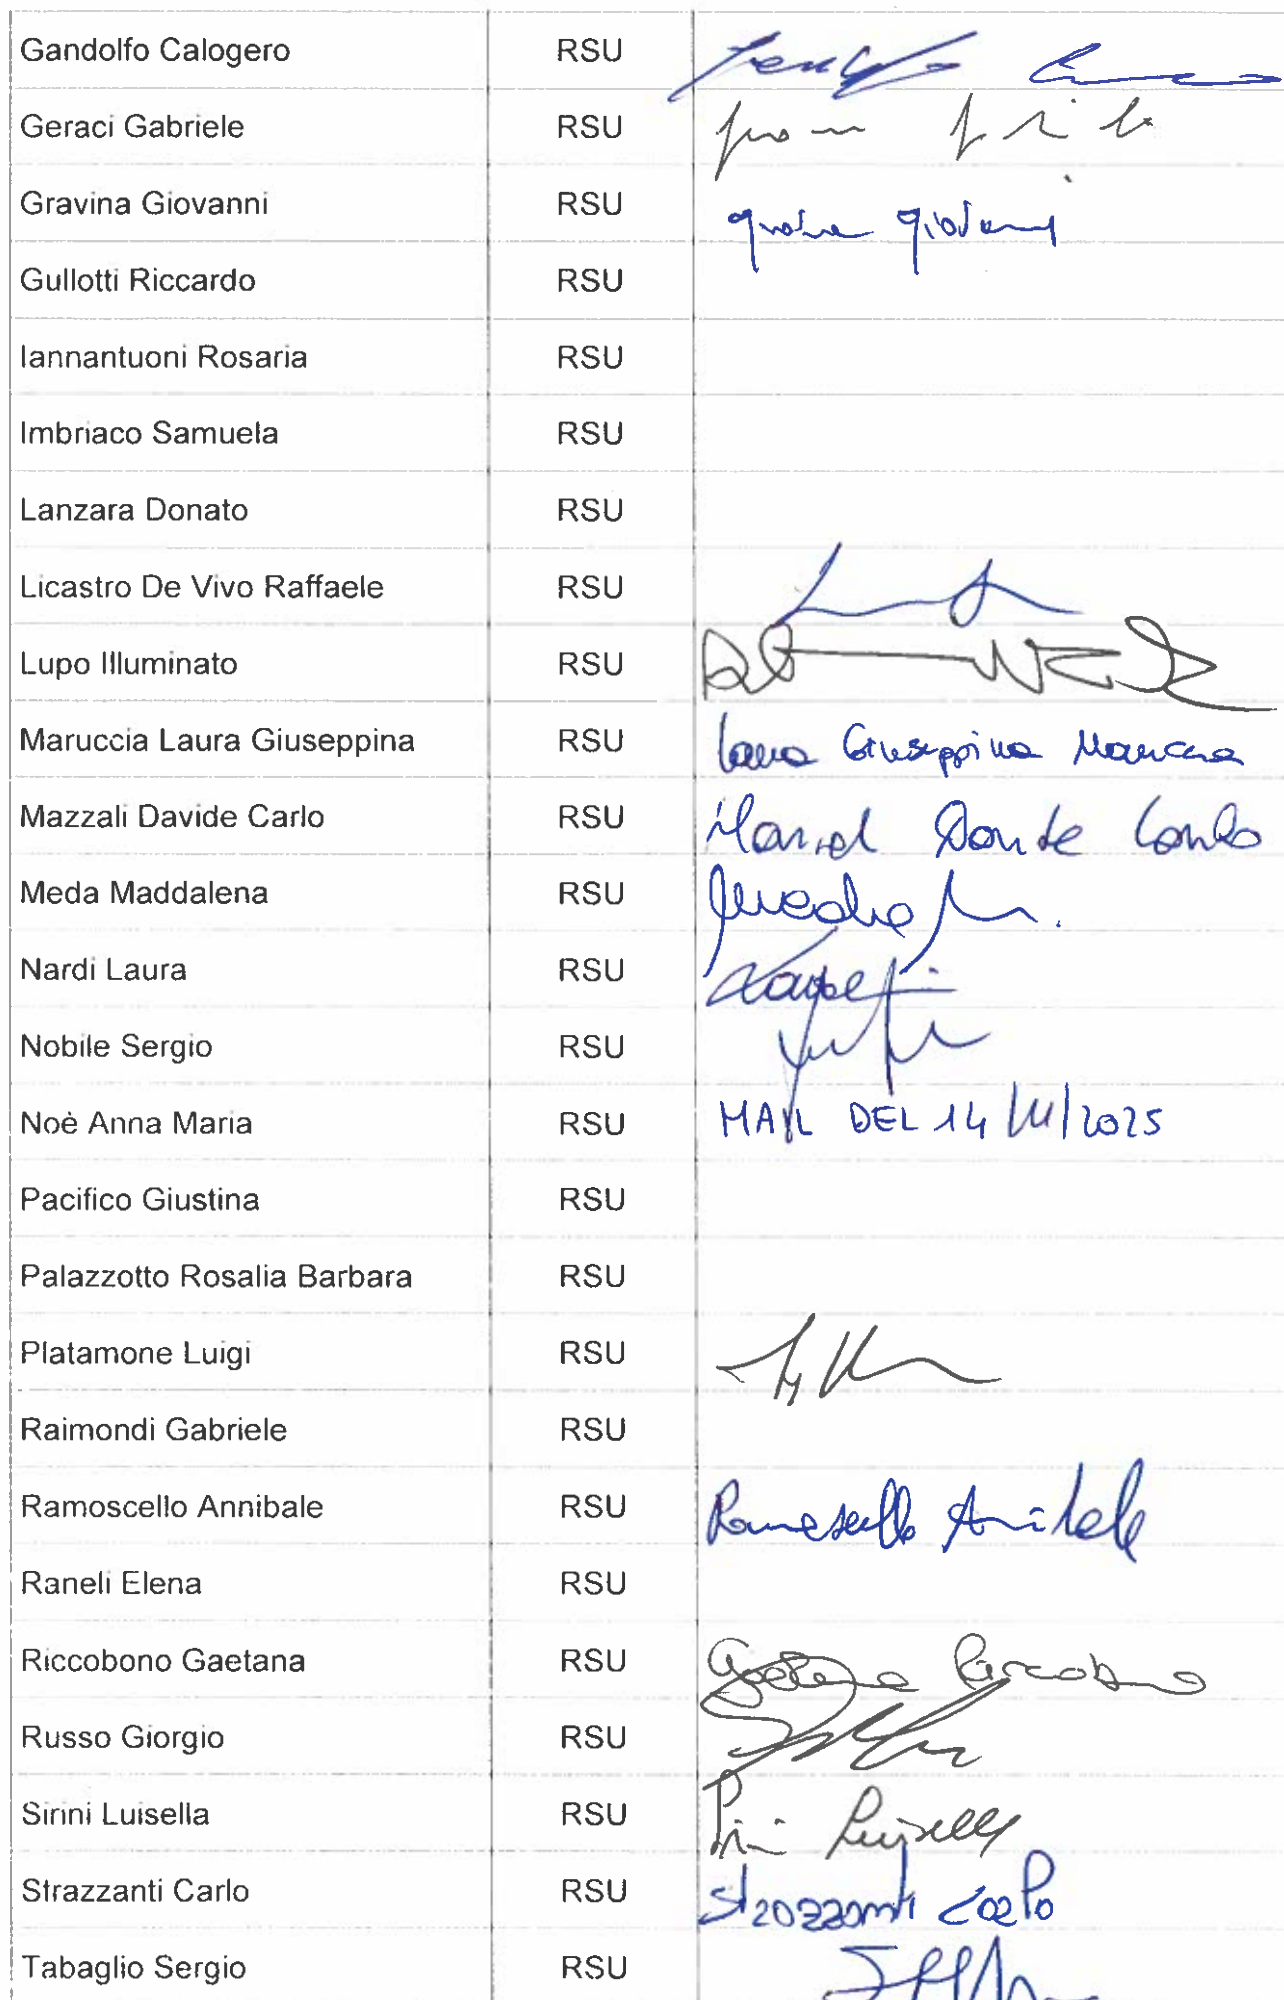 Gandolfo Calogero RSU
Geraci Gabriele RSU
Gravina Giovanni RSU Giovanni
Gullotti Riccardo RSU
Iannantuoni Rosaria RSU
Imbriaco Samuela RSU
Lanzara Donato RSU
Licastro De Vivo Raffaele RSU
Lupo Illuminato RSU
Maruccia Laura Giuseppina RSU Laura Giuseppina Maruccia
Mazzali Davide Carlo RSU Mazzali Davide Carlo
Meda Maddalena RSU Meda M.
Nardi Laura RSU
Nobile Sergio RSU
Noè Anna Maria RSU MAIL DEL 14/11/2025
Pacifico Giustina RSU
Palazzotto Rosalia Barbara RSU
Platamone Luigi RSU
Raimondi Gabriele RSU
Ramoscello Annibale RSU Ramoscello Annibale
Raneli Elena RSU
Riccobono Gaetana RSU Gaetana Riccobono
Russo Giorgio RSU
Sirini Luisella RSU Luisella
Strazzanti Carlo RSU Strazzanti Carlo
Tabaglio Sergio RSU